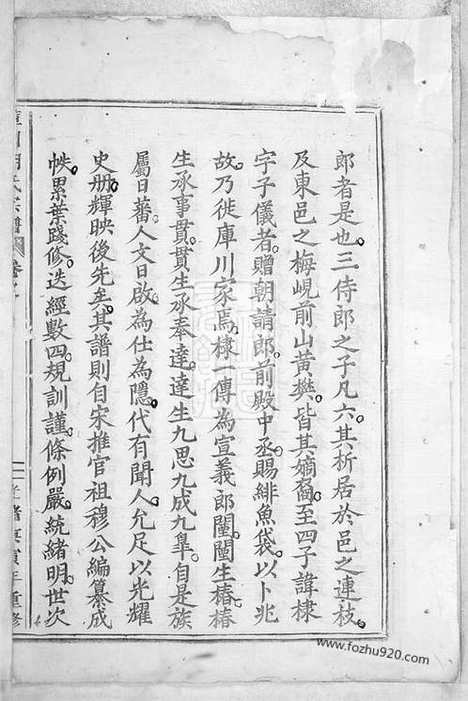 郎者是也三侍郎之子凡六其析居於邑之連枝
及東邑之梅峴前山黃樊皆其嫡裔至四子諱棣
字子儀者贈朝請郎前殿中丞賜緋魚袋以卜兆
故乃徙庫川家焉棣一傳為宣義郎闉闉生椿椿
生承事貫貫生承奉達達生九思九成九臯自是族
屬日蕃人文日啟為仕為隱代有聞人允足以光耀
史册輝映後先矣其譜則自宋推官祖穆公編纂成
帙累葉踐修迭經數四規訓謹條例嚴統緒明世次
川胡氏宗譜 卷之
寅年重修
www.fozhu920.com